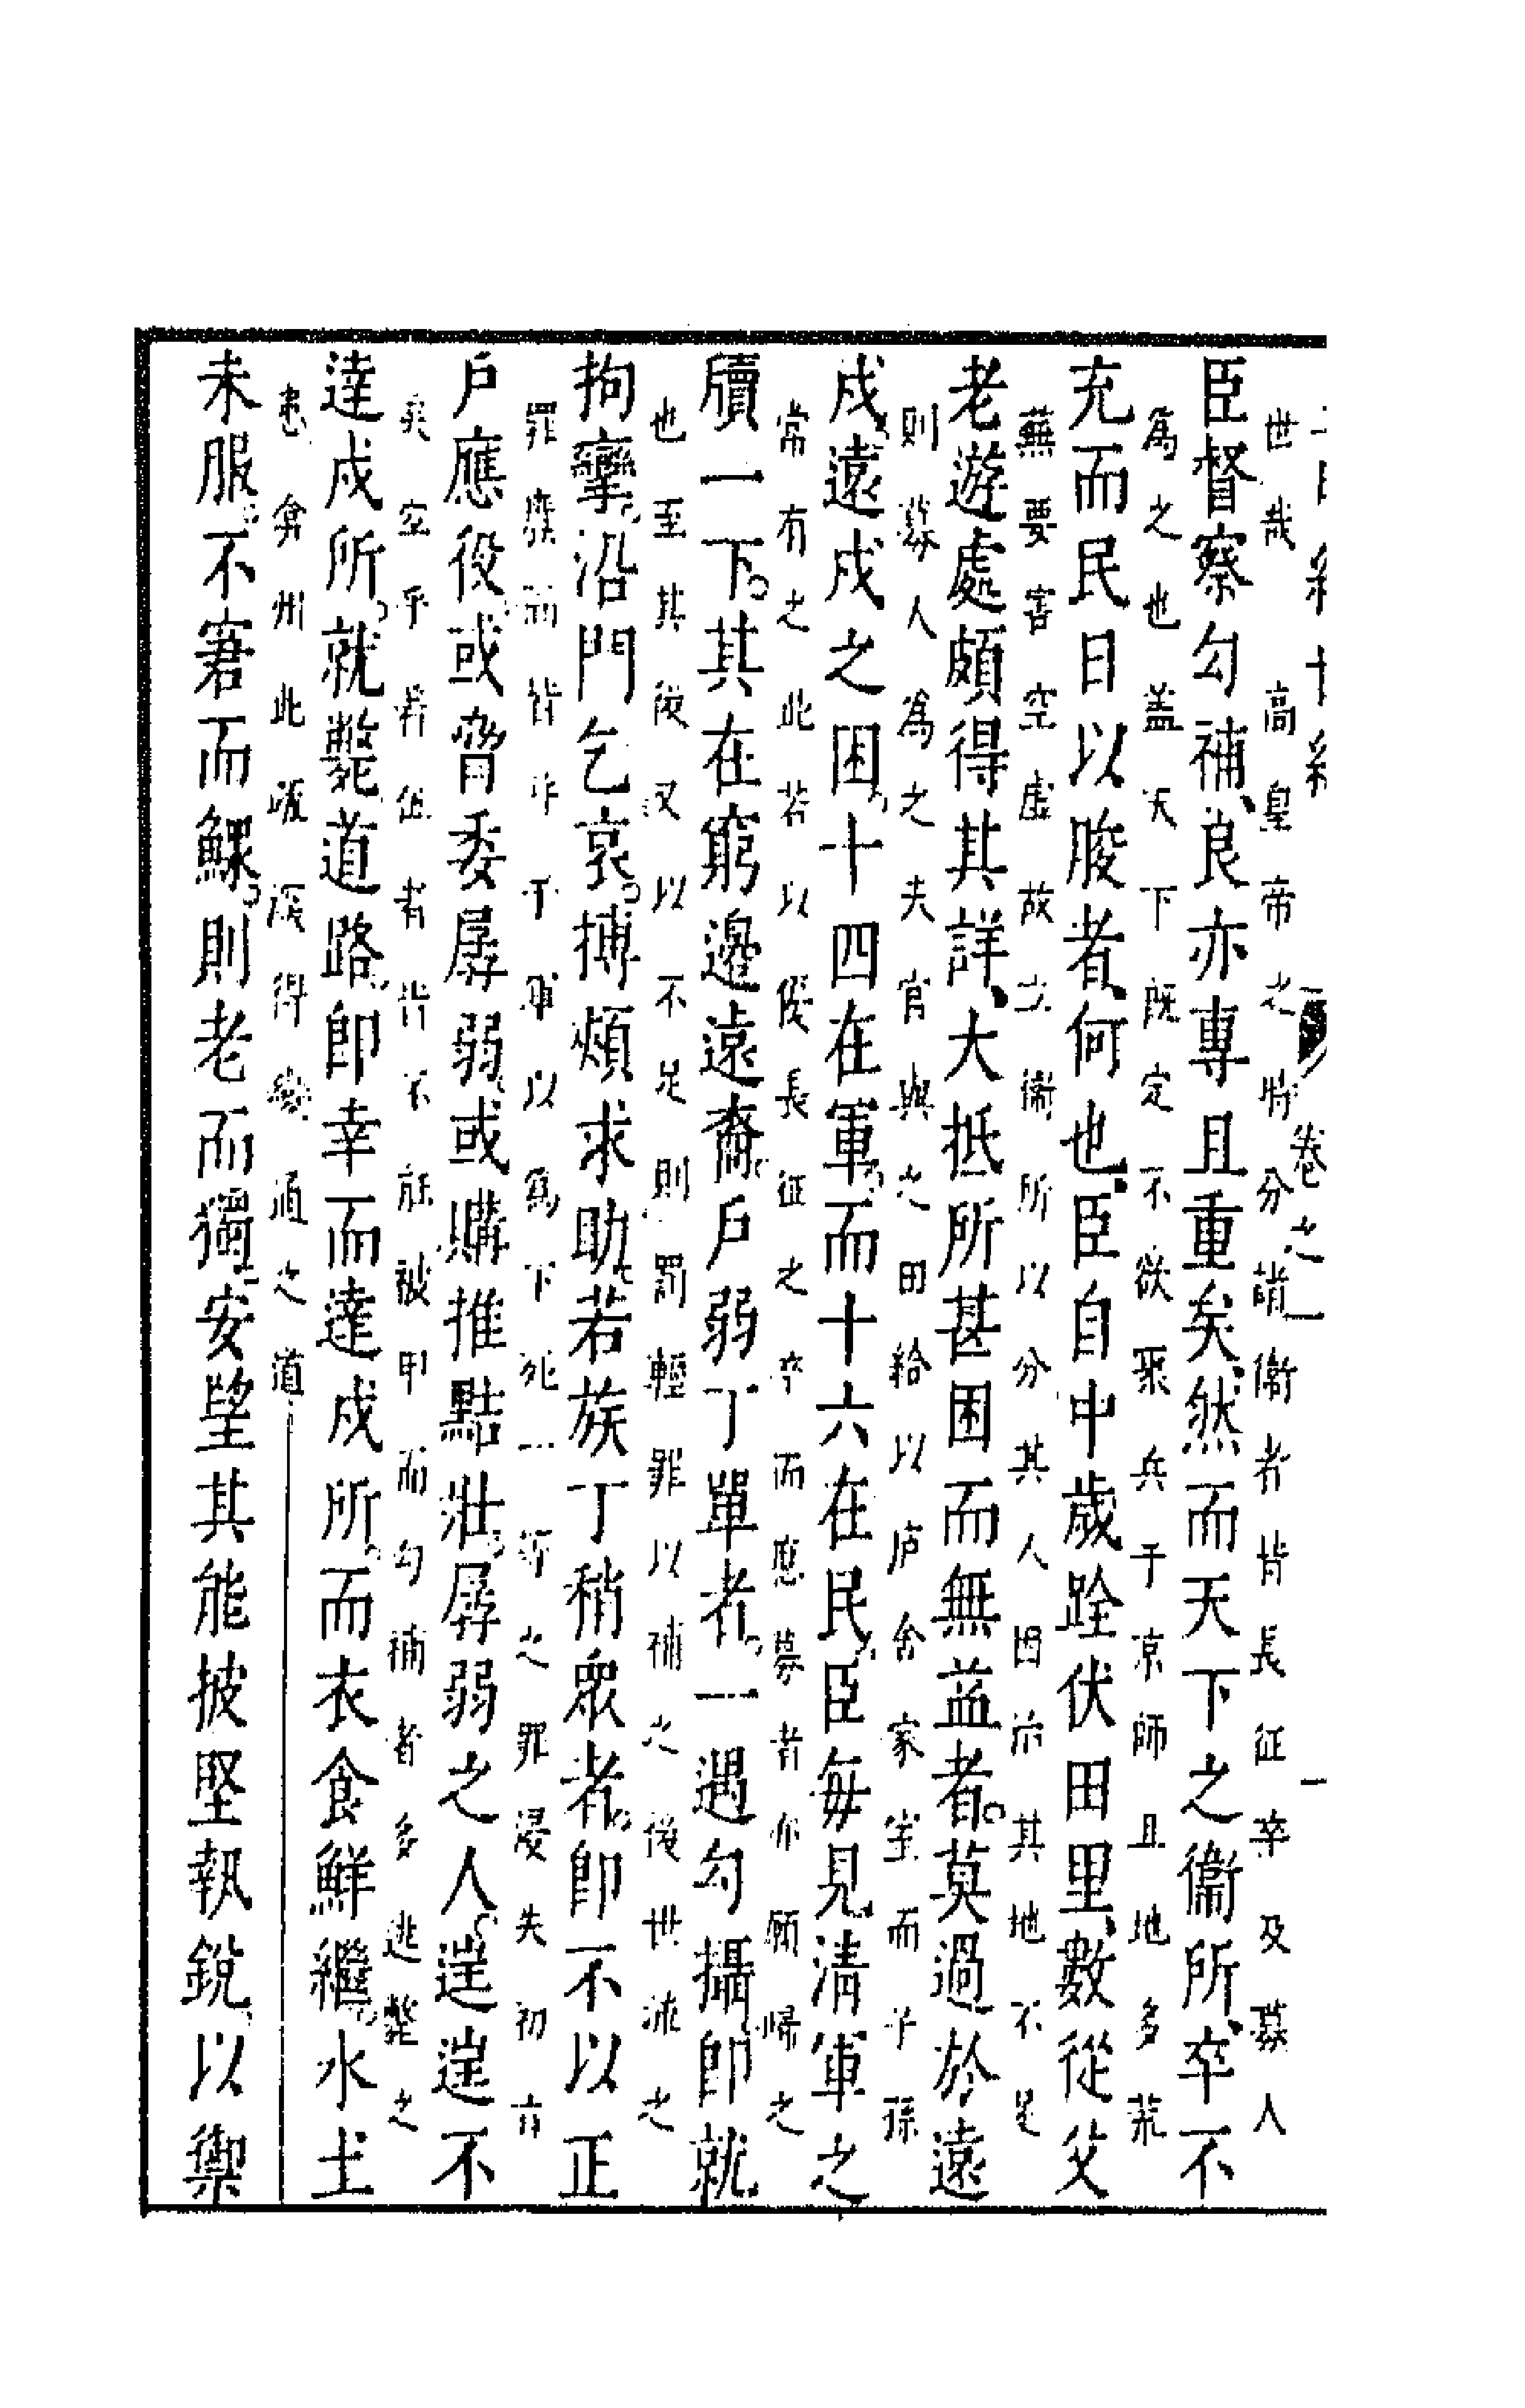 卷之一 一
世哉高皇帝之時分諸衛者皆長征卒及募人
臣督察勾補良亦專且重矣然而天下之衞所卒不
爲之也盖天下既定不欲聚兵于京師且地多荒
充而民日以朘者何也臣自中歲跧伏田里數從父
蕪要害空虛故立衞所以分其人因治其地不足
老遊處頗得其詳大抵所甚困而無益者莫過於遠
則募人爲之夫官與之田給以庐舍家室而子孫
戍遠戍之困十四在軍而十六在民臣每見清軍之
常有之此若以侵長征之卒而應募者亦願歸之
牘一下其在窮邊遠裔戶弱丁單者一遇勾攝卽就
也至其後又以不足則罰輕罪以補之後世沭之
拘攣沿門乞哀搏頰求助若族丁稍衆者卽不以正
罪廢而皆 于軍以爲下死一等之罪浸失初
戶應役或脅委孱弱或購推黠壯孱弱之人逞逞不
矣空乎若伍者皆不能被甲而勾補者多逃斃之
達戍所就斃道路卽幸而達戍所而衣食鮮繼水土
患 州此 深得 通之道
未服不窘而鰥則老而獨安望其能披堅執銳以禦